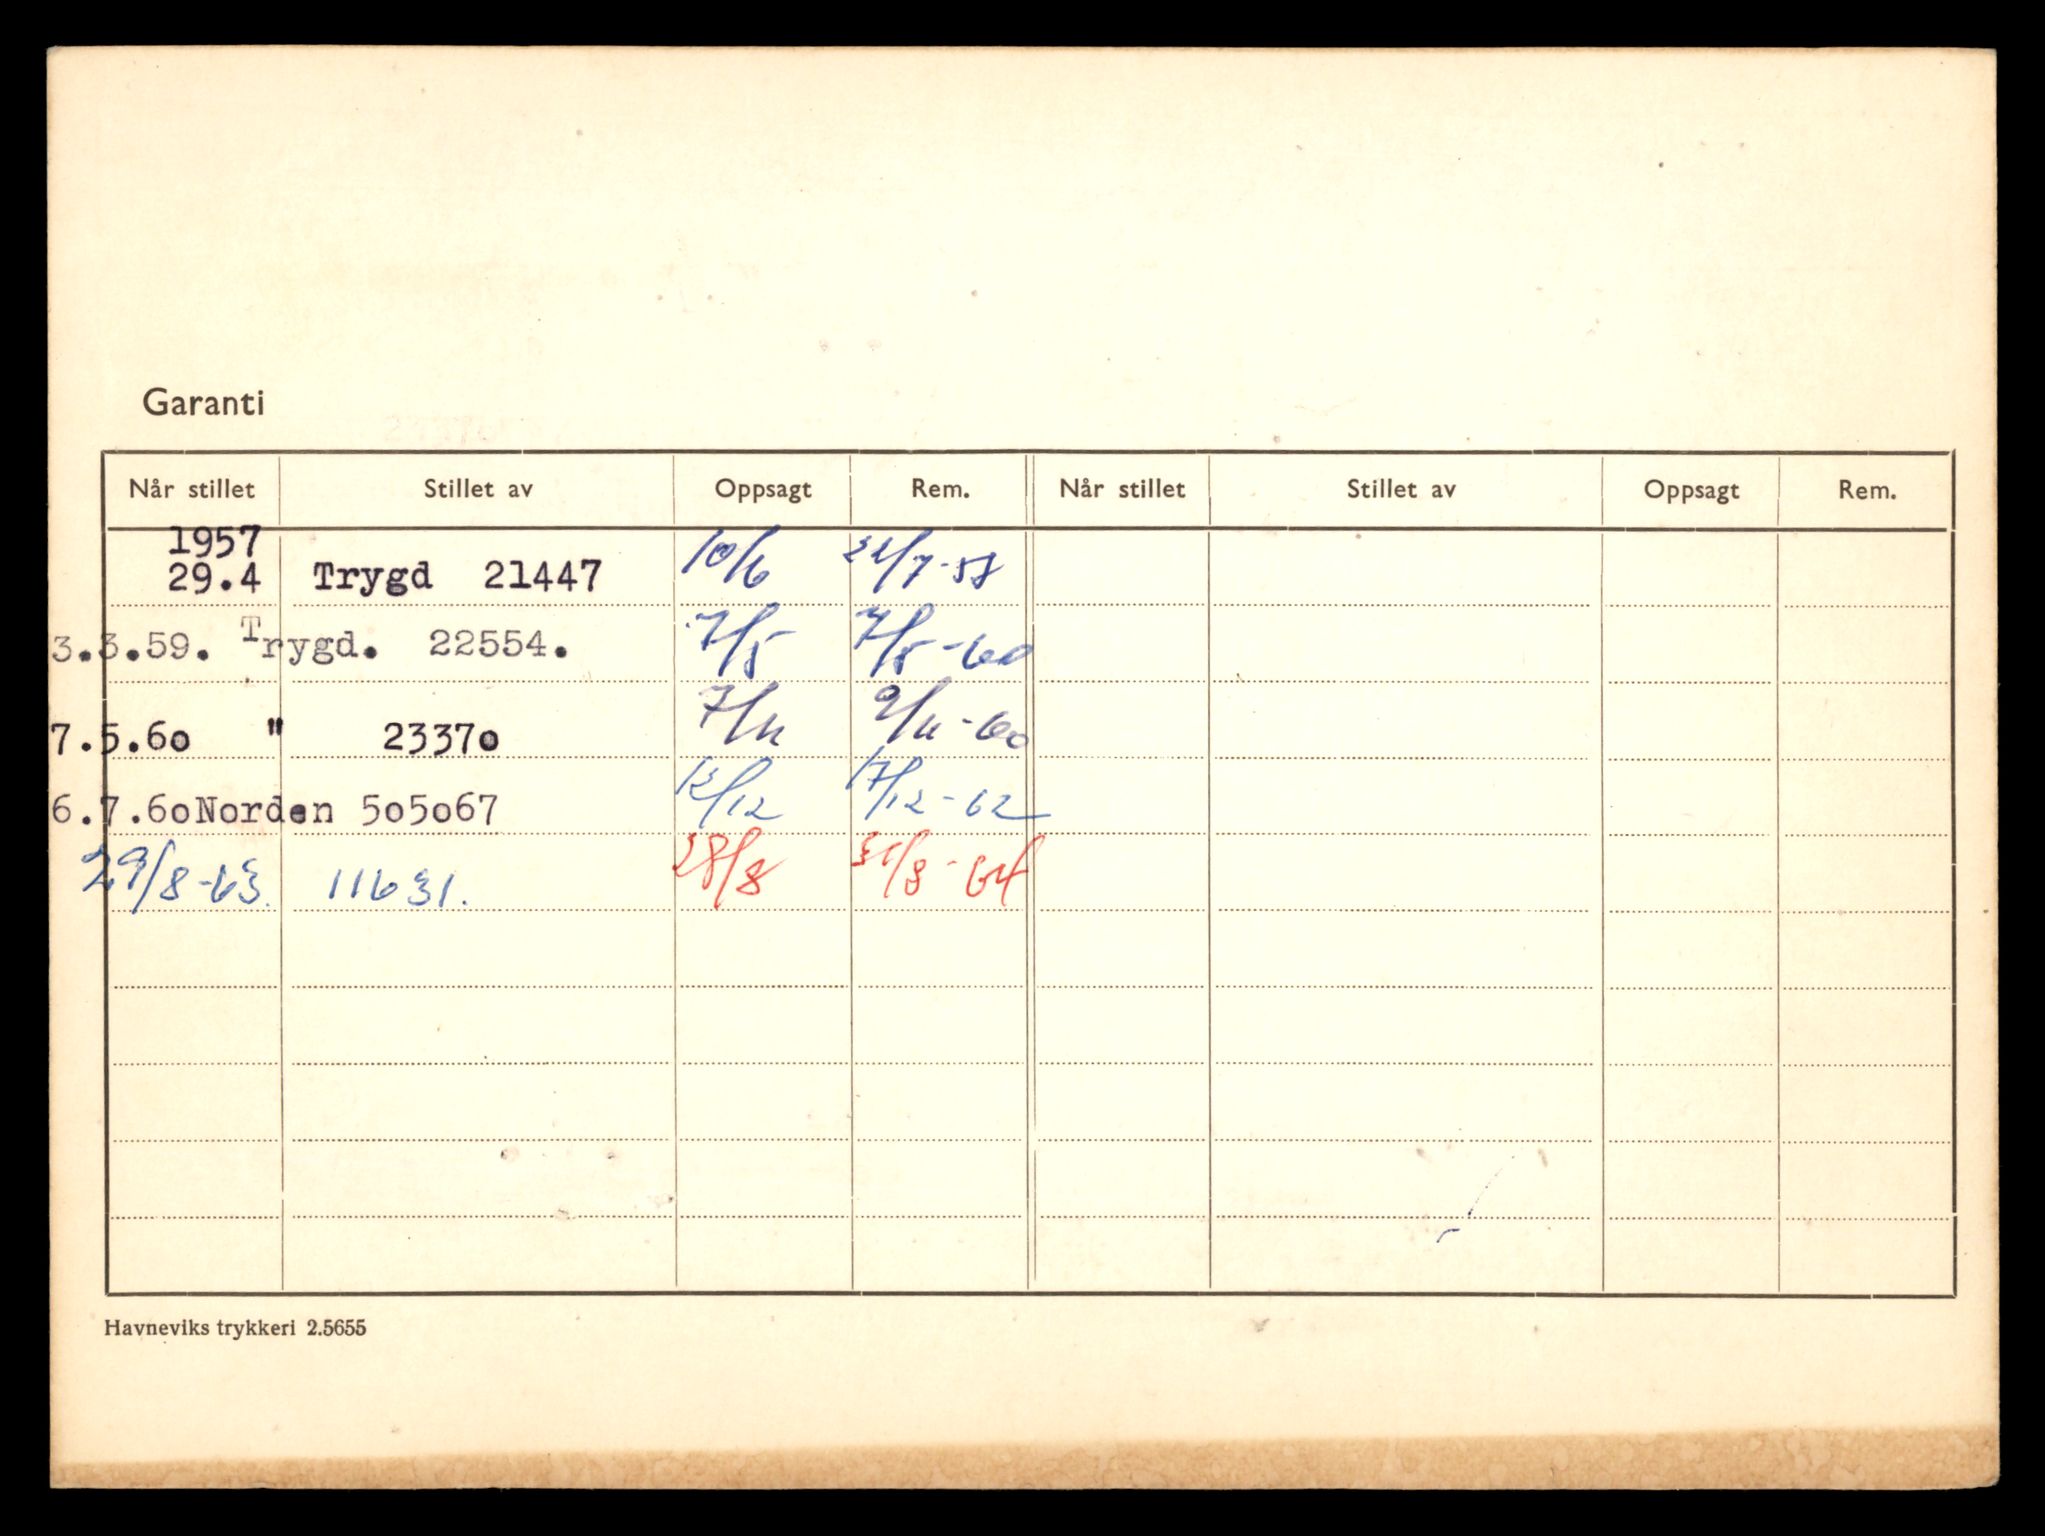 Garanti
Når stillet Stillet av Oppsagt Rem. Når stillet Stillet av Oppsagt Rem.
1957
29.4 Trygd 21447 10/6 /7-58
3.3.59. Trygd. 22554. 7/5 7/5-60
7.5.60 " 23370 7/11 9/11-60
6.7.60 Norden 505067 /12 17/12-62
29/8-63. 11631. 28/8 31/8-64
Havneviks trykkeri 2.5655